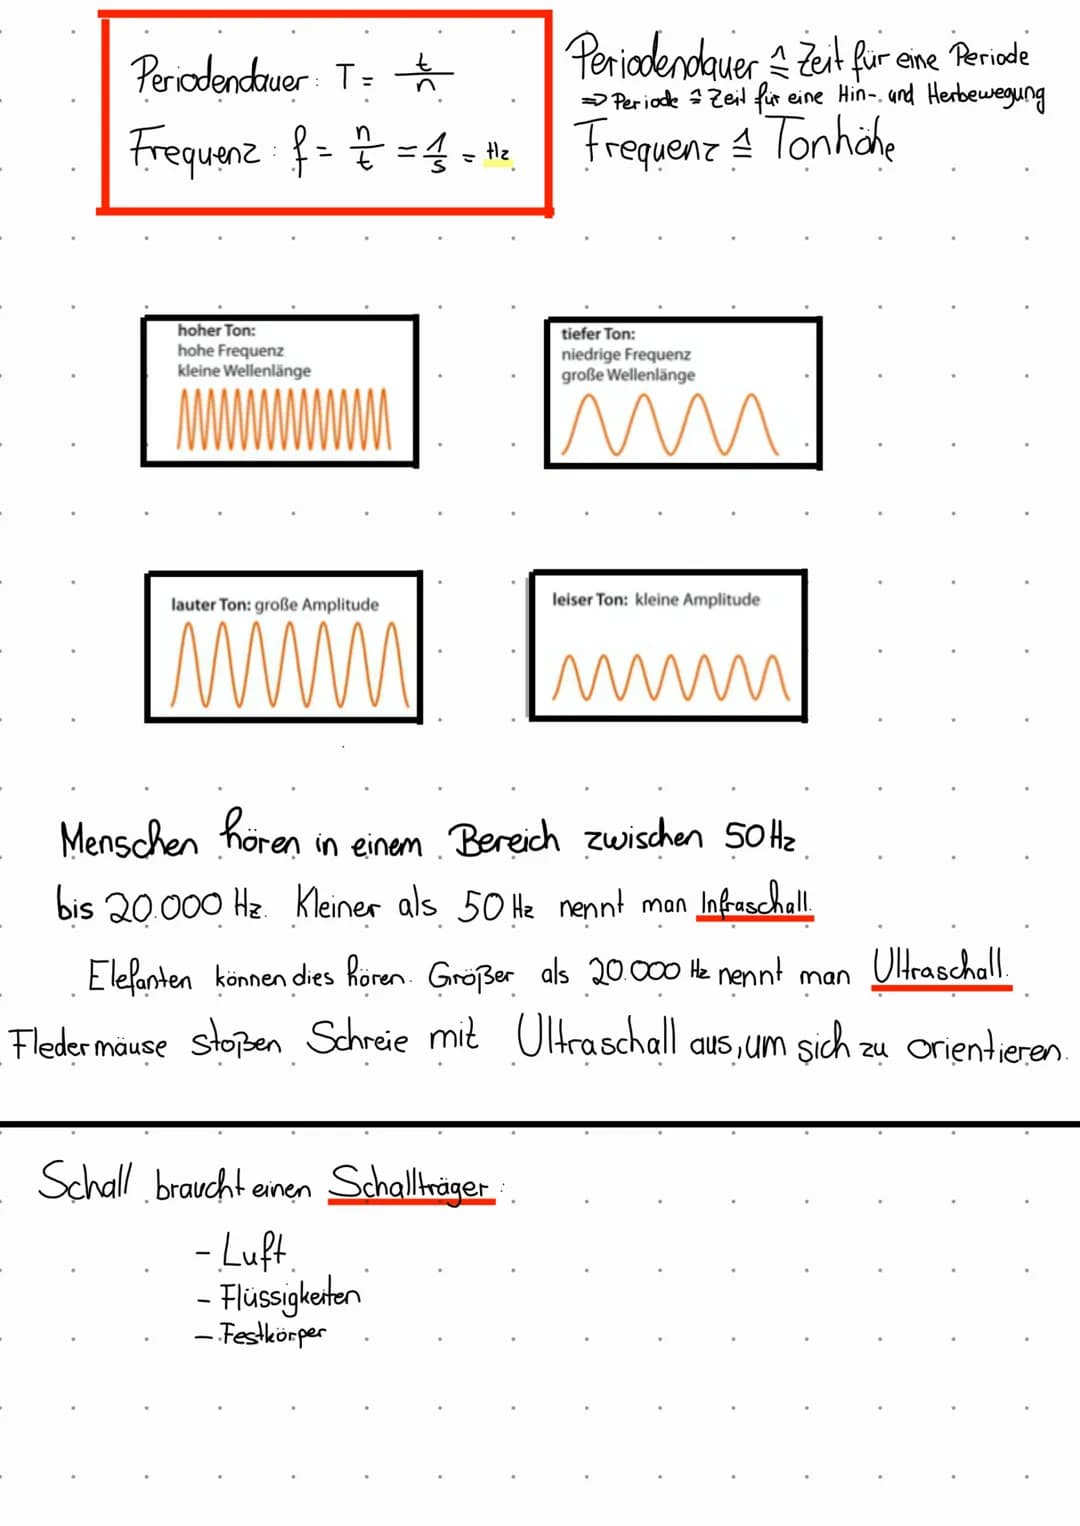 Periodendauer: T = t/n
Frequenz: f = n/t = 1/s = Hz
Periodendauer ≙ Zeit für eine Periode
=> Periode ≙ Zeit für eine Hin- und Herbewegung
Frequenz ≙ Tonhöhe
hoher Ton:
hohe Frequenz
kleine Wellenlänge
tiefer Ton:
niedrige Frequenz
große Wellenlänge
lauter Ton: große Amplitude
leiser Ton: kleine Amplitude
Menschen hören in einem Bereich zwischen 50 Hz
bis 20.000 Hz. Kleiner als 50 Hz nennt man Infraschall.
Elefanten können dies hören. Größer als 20.000 Hz nennt man Ultraschall.
Fledermäuse stoßen Schreie mit Ultraschall aus, um sich zu orientieren.
Schall braucht einen Schallträger:
- Luft
- Flüssigkeiten
- Festkörper